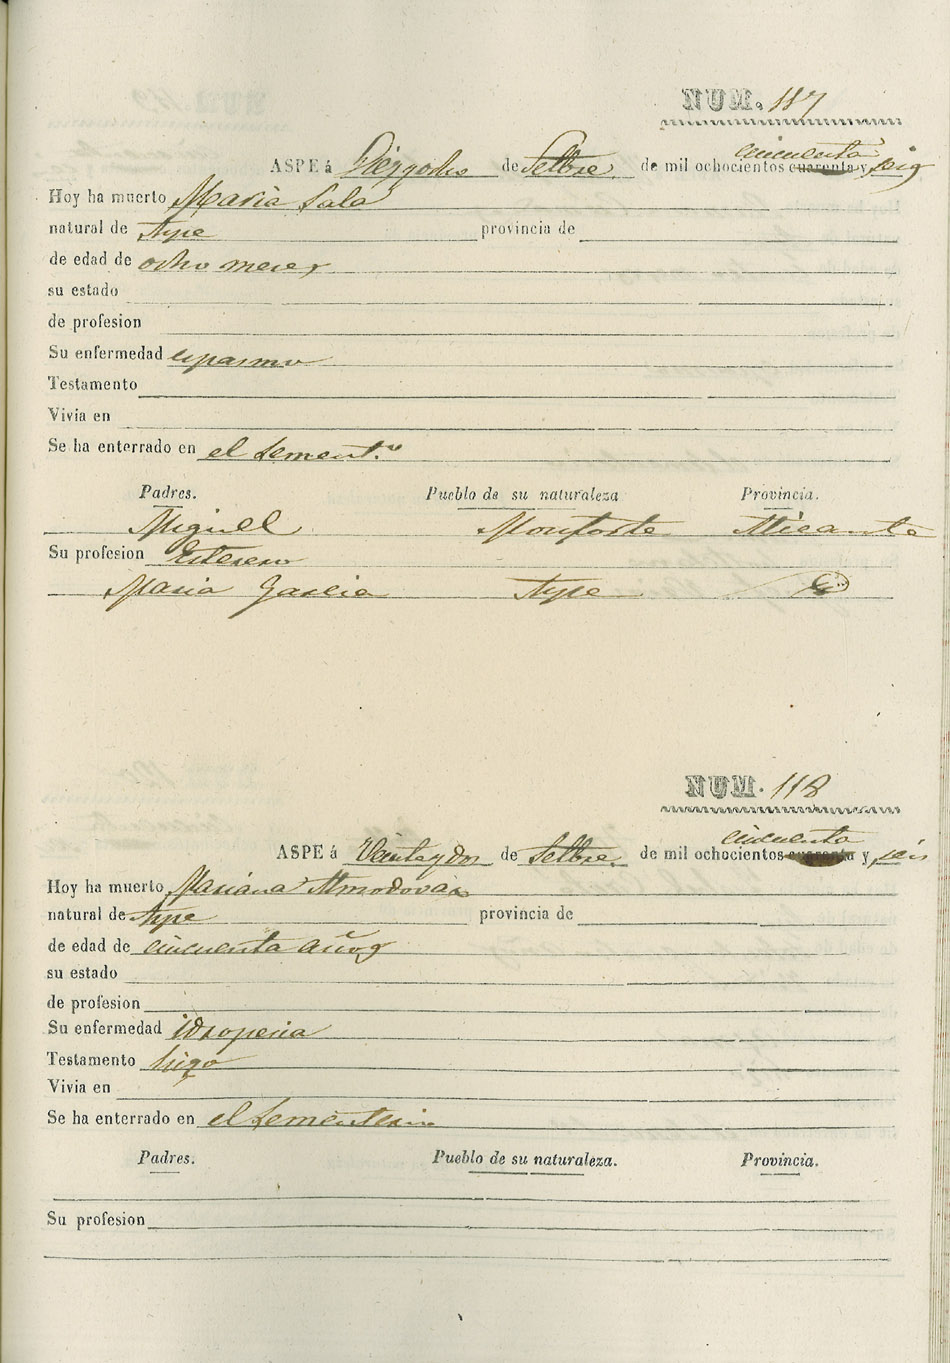 NUM. 117
cincuenta
ASPE á Diezyocho de Setbre. de mil ochocientos cuarenta y seis
Hoy ha muerto Maria Sala
natural de Aspe provincia de
de edad de ocho meses
su estado
de profesion
Su enfermedad espasmo
Testamento
Vivia en
Se ha enterrado en el Sement.º
Padres. Pueblo de su naturaleza Provincia.
Miguell Monforte Alicante
Su profesion Esterero
Maria Garcia Aspe
NUM. 118
cincuenta
ASPE á Veinteydos de Setbre. de mil ochocientos cuarenta y seis
Hoy ha muerto Mariana Almodovar
natural de Aspe provincia de
de edad de cincuenta años
su estado
de profesion
Su enfermedad idropecia
Testamento hizo
Vivia en
Se ha enterrado en el Sementerio
Padres. Pueblo de su naturaleza. Provincia.
Su profesion